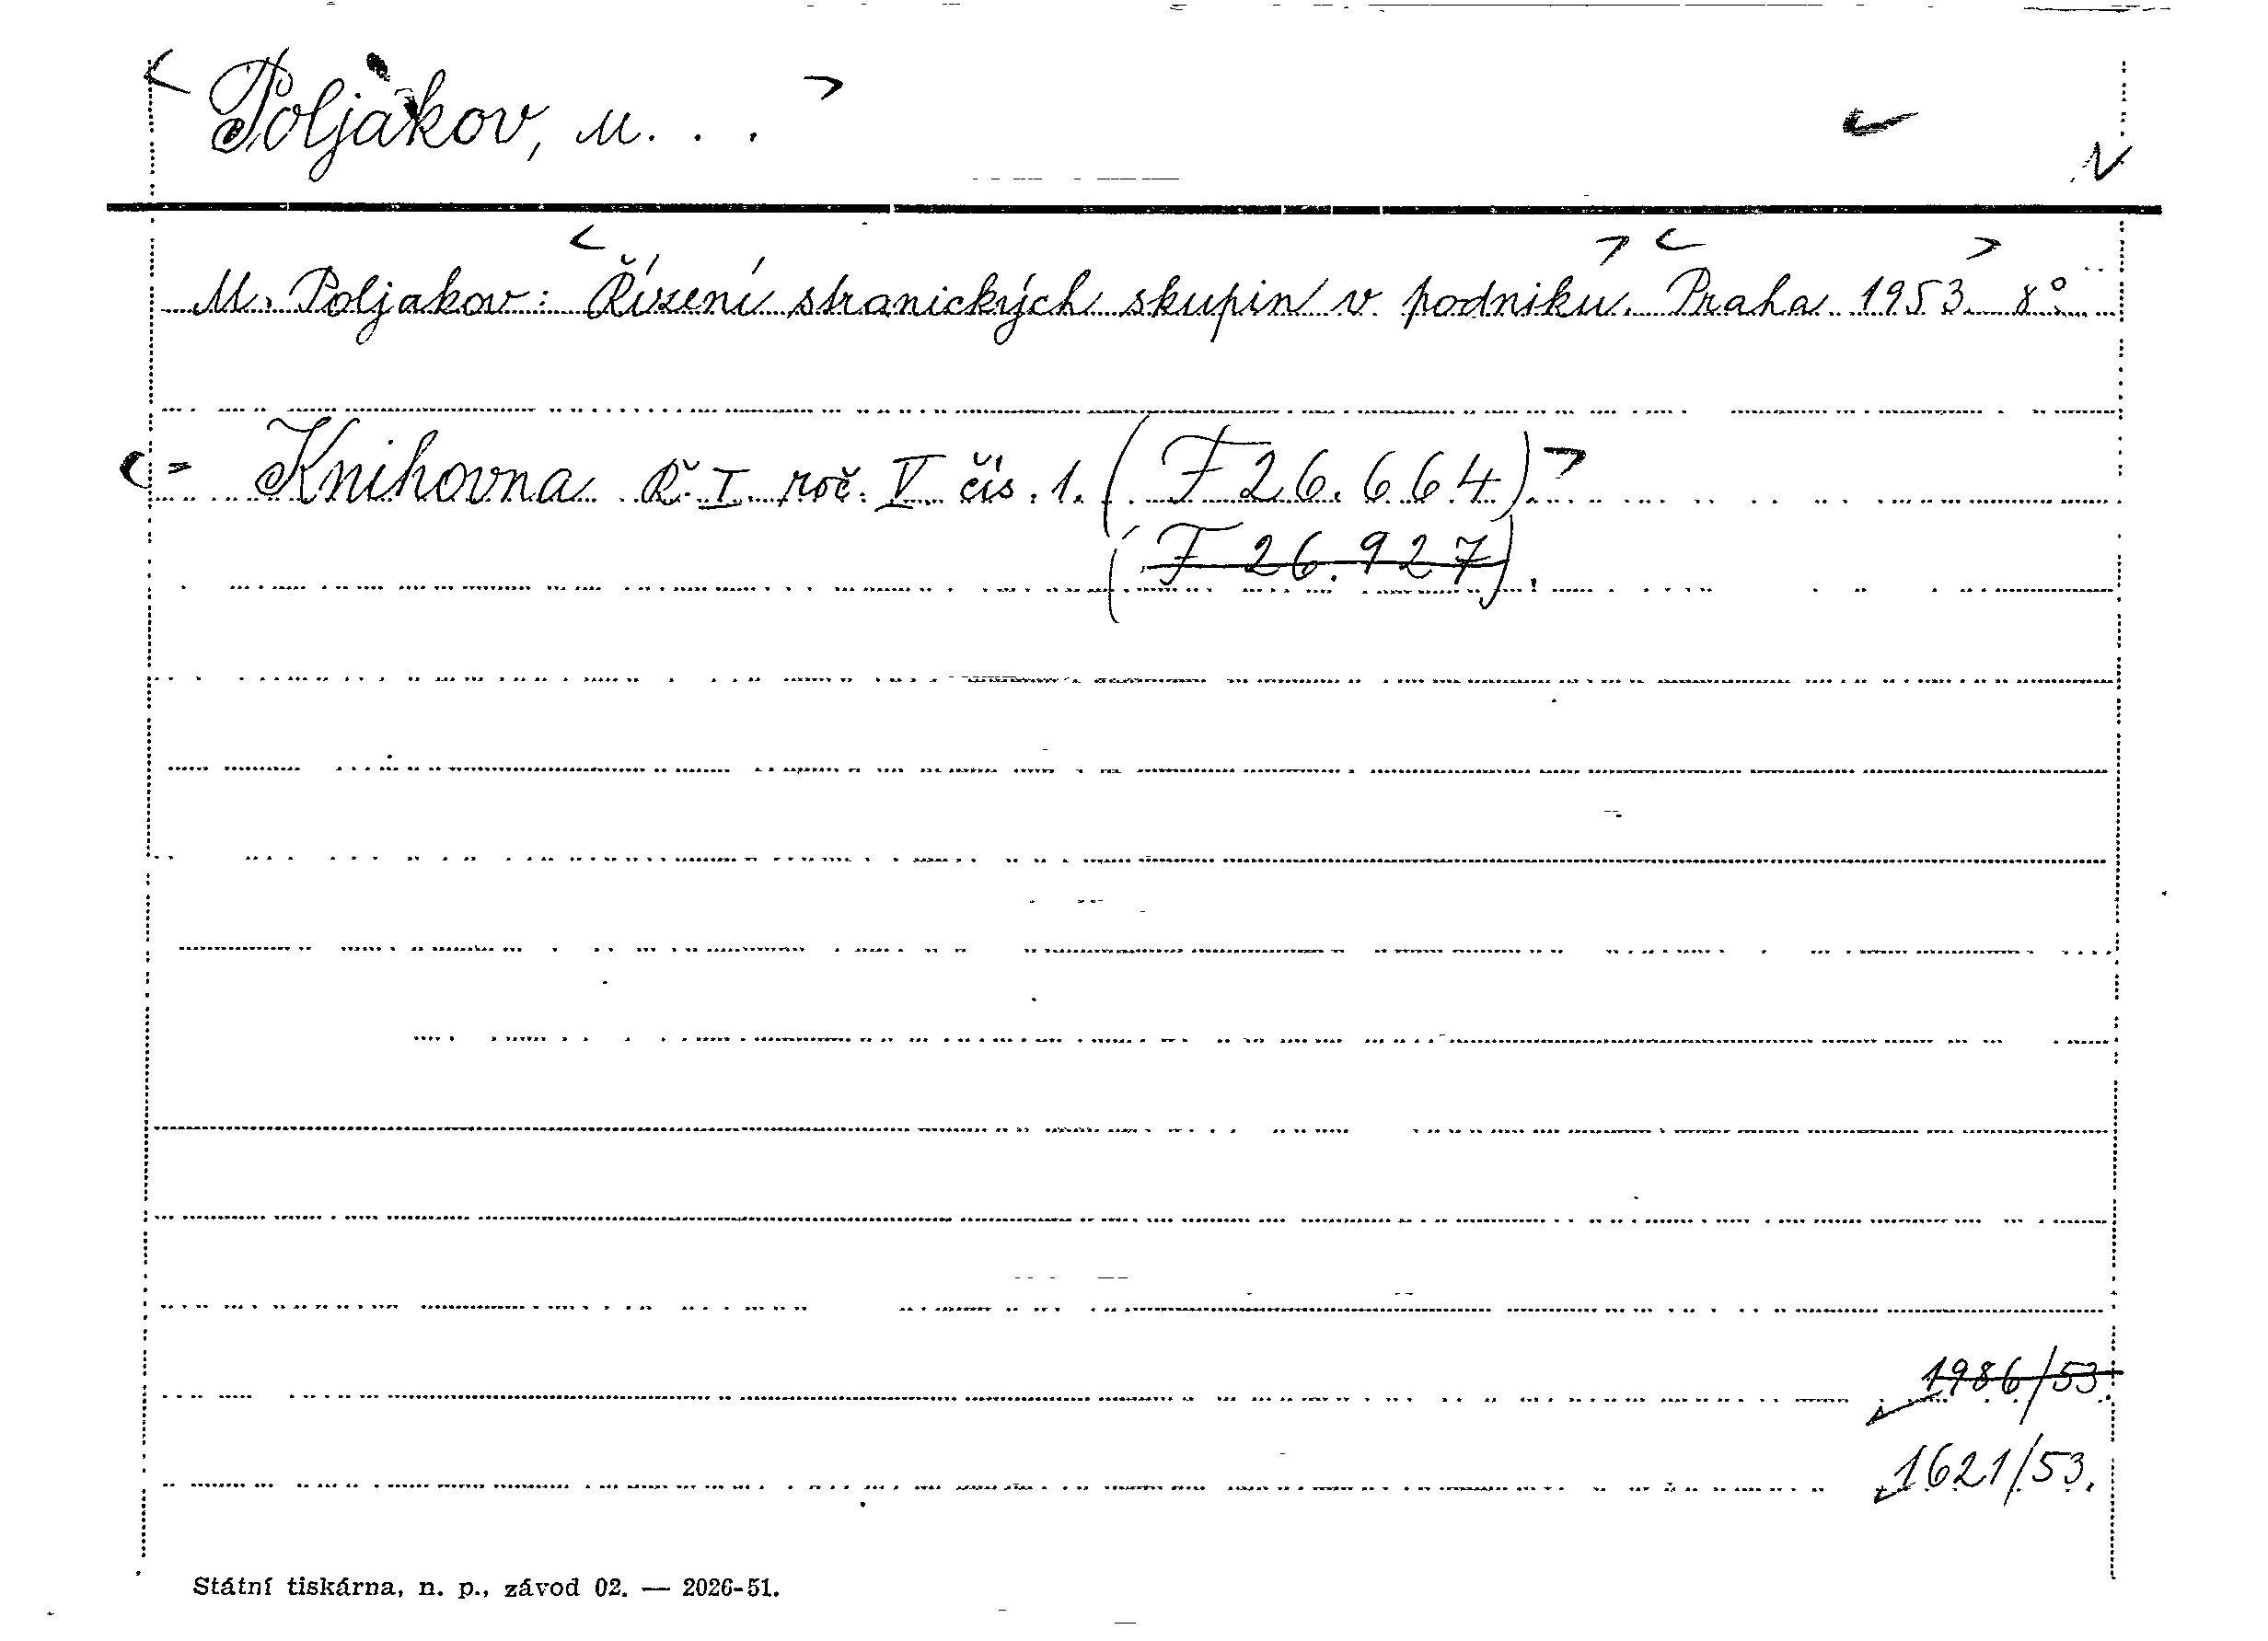 < Poljakov, M. . . >
N
M. Poljakov: <Řízení stranických skupin v podniku.> <Praha 1953.> 8°
<= Knihovna Ř. I. roč. V čís. 1. (F 26.664).>
(F 26.927).
1986/53.
1621/53.
Státní tiskárna, n. p., závod 02. — 2026-51.